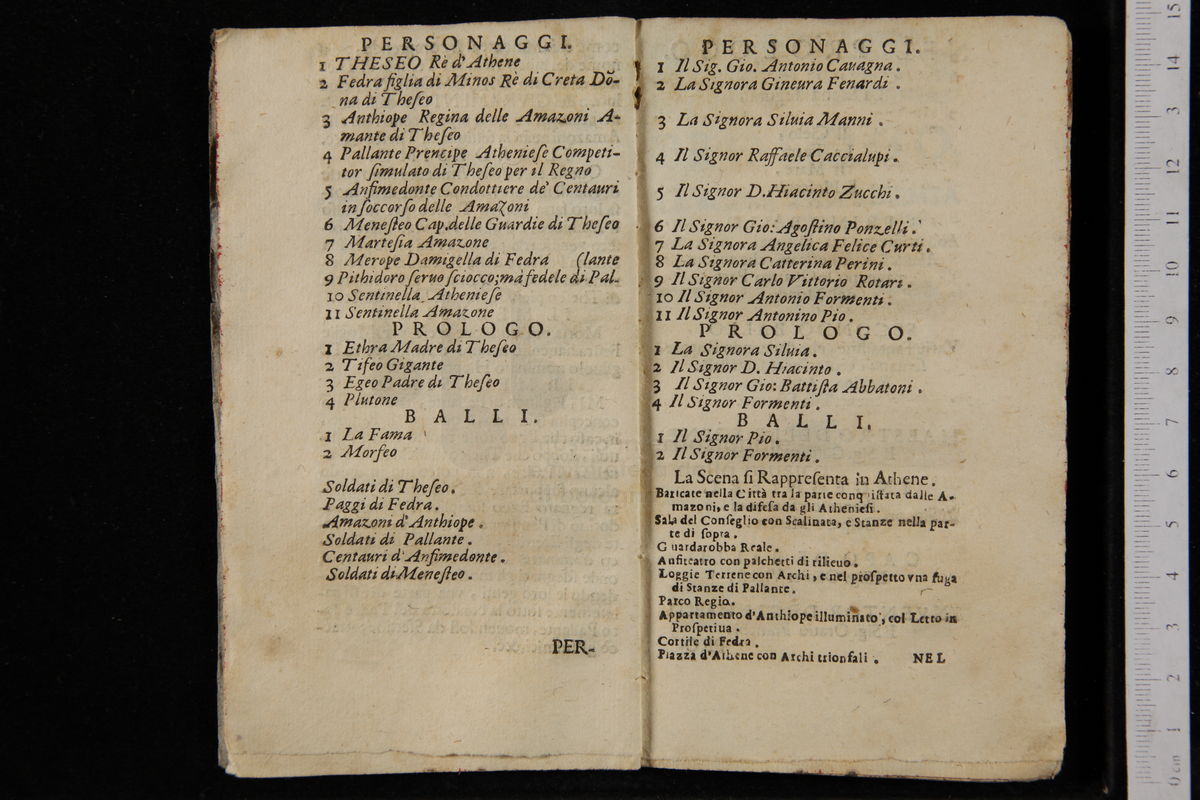 PERSONAGGI.
1 THESEO Rè d'Athene
2 Fedra figlia di Minos Rè di Creta Dõ-
na di Theſeo
3 Anthiope Regina delle Amazoni A-
mante di Theſeo
4 Pallante Prencipe Athenieſe Competi-
tor ſimulato di Theſeo per il Regno
5 Anfimedonte Condottiere de' Centauri
in ſoccorſo delle Amazoni
6 Meneſteo Cap. delle Guardie di Theſeo
7 Marteſia Amazone
8 Merope Damigella di Fedra (lante
9 Pithidoro ſeruo ſciocco; mà fedele di Pal-
10 Sentinella Athenieſe
11 Sentinella Amazone
PROLOGO.
1 Ethra Madre di Theſeo
2 Tifeo Gigante
3 Egeo Padre di Theſeo
4 Plutone
BALLI.
1 La Fama
2 Morfeo
Soldati di Theſeo.
Paggi di Fedra.
Amazoni d'Anthiope.
Soldati di Pallante.
Centauri d'Anfimedonte.
Soldati di Meneſteo.
PER-
PERSONAGGI.
1 Il Sig. Gio. Antonio Cauagna.
2 La Signora Gineura Fenardi.
3 La Signora Siluia Manni.
4 Il Signor Raffaele Caccialupi.
5 Il Signor D. Hiacinto Zucchi.
6 Il Signor Gio: Agoſtino Ponzelli.
7 La Signora Angelica Felice Curti.
8 La Signora Catterina Perini.
9 Il Signor Carlo Vittorio Rotari.
10 Il Signor Antonio Formenti.
11 Il Signor Antonino Pio.
PROLOGO.
1 La Signora Siluia.
2 Il Signor D. Hiacinto.
3 Il Signor Gio: Battiſta Abbatoni.
4 Il Signor Formenti.
BALLI.
1 Il Signor Pio.
2 Il Signor Formenti.
La Scena ſi Rappreſenta in Athene.
Baricate nella Città tra la parte conquiſtata dalle A-
mazoni, e la difeſa da gli Athenieſi.
Sala del Conſeglio con Scalinata, e Stanze nella par-
te di ſopra.
Guardarobba Reale.
Anfiteatro con palchetti di rilieuo.
Loggie Terrene con Archi, e nel proſpetto vna fuga
di Stanze di Pallante.
Parco Regio.
Appartamento d'Anthiope illuminato, col Letto in
Proſpetiua.
Cortile di Fedra.
Piazza d'Athene con Archi trionfali.
NEL
0 cm 1 2 3 4 5 6 7 8 9 10 11 12 13 14 15